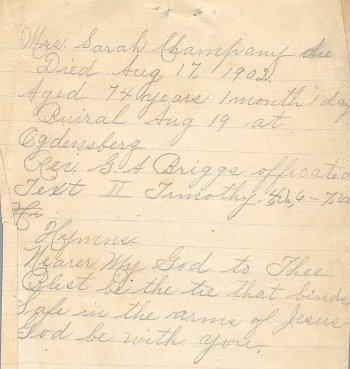 Mrs. Sarah Champany
Died Aug 17, 1902.
Aged 74 years 1 month 1 day
Buiral Aug 19 at
Ogdensberg
Rev. G. A Briggs officated
Text II Timothy. 4ch, 6-7
Hymns
Nearer My God to Thee
Blest be the tie that binds
Safe in the arms of Jesus
God be with you.